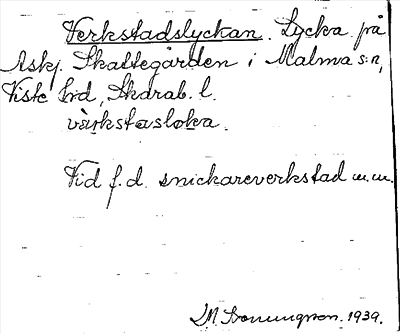 Verkstadslyckan. Lycka på
Askj. Skattegården i Malma s:n,
Viste hrd, Skarab. l.
værkstasløka.
Vid f.d. snickareverkstad m.m.
1939.